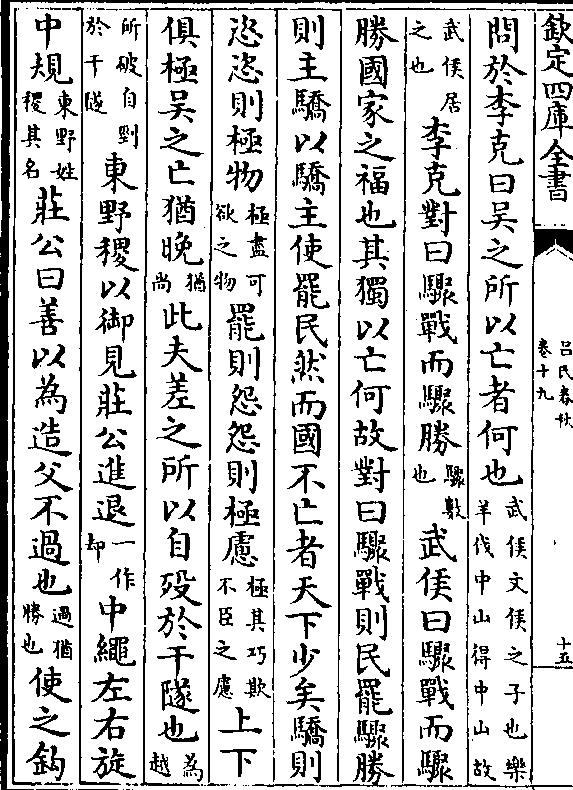 欽定四庫全書 呂氏春秋卷十九 十五
問於李克曰吳之所以亡者何也武侯文侯之子也樂羊伐中山得中山故
武侯居之也李克對曰驟戰而驟勝驟數也武侯曰驟戰而驟
勝國家之福也其獨以亡何故對曰驟戰則民罷驟勝
則主驕以驕主使罷民然而國不亡者天下少矣驕則
恣恣則極物極盡可欲之物罷則怨怨則極慮極其巧欺不臣之慮上下
俱極吳之亡猶晚猶尚此夫差之所以自歿於干隧也為越
所破自剄於干隧東野稷以御見莊公進退一作却中繩左右旋
中規東野姓稷其名莊公曰善以為造父不過也過猶勝也使之鈎